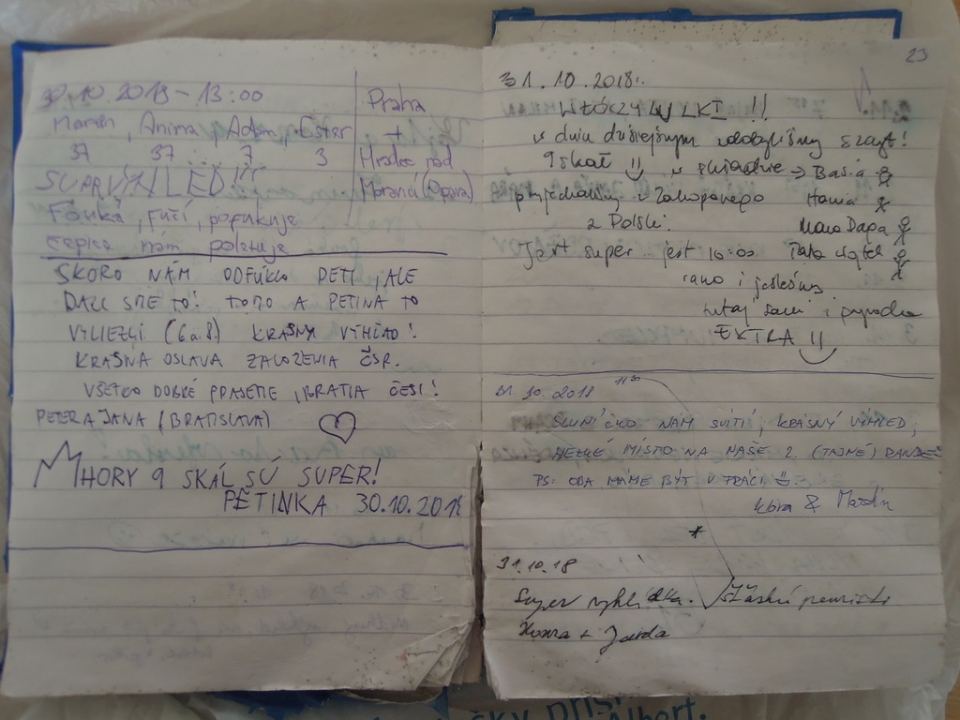 30.10.2018 - 13:00
Praha
Martin, Anina, Adam, Ester
+
37 37 7 3
Hradec nad
Moravicí (Opava)
SUPR VÝHLED!!!
Fouká, fučí, pofukuje
čepice nám poletuje
SKORO NÁM ODFÚKLO DETI, ALE
DALI SME TO! TOMO A PETINA TO
VYLIEZLI (6 a 8) KRÁSNY VÝHĽAD!
KRÁSNA OSLAVA ZALOŽENIA ČSR.
VŠETKO DOBRÉ PRAJEME, BRATIA ČESI!
PETER A JANA (BRATISLAVA)
HORY 9 SKÁL SÚ SUPER!
PETINKA 30.10.2018
23
31.10.2018r.
WŁÓCZYWILKI !!
w dniu dzisiejszym zdobyliśmy szczyt!
9 skał w składzie → Basia
przyjechaliśmy z Zakopanego Hania
z Polski. Mama Daga
Jest super jest 10:00 Tata
rano i jesteśmy
tutaj sami i pogoda
EXTRA
31.10.2018 11:30
SLUNÍČKO NÁM SVÍTÍ, KRÁSNÝ VÝHLED,
HEZKÉ MÍSTO NA NAŠE 2. (TAJNÉ) RANDE
PS: OBA MÁME BÝT V PRÁCI
& Martin
31.10.18
Super vyhlídka.
+ Jarda